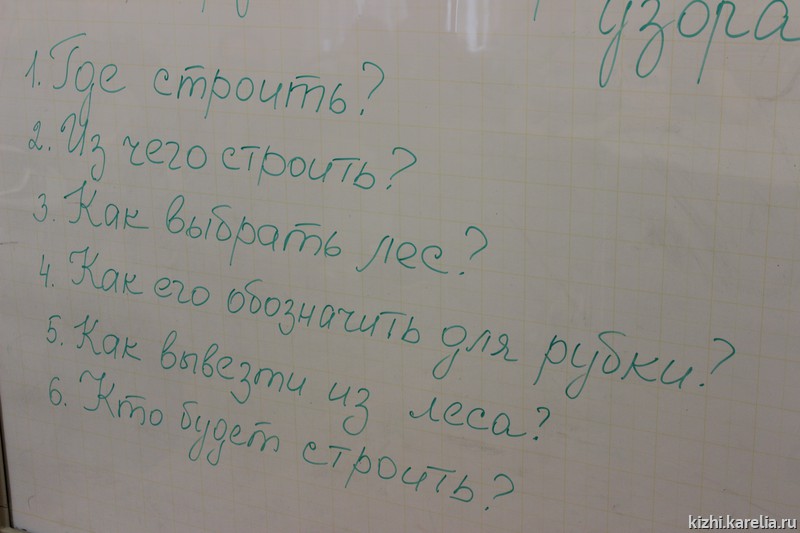 узора
1. Где строить?
2. Из чего строить?
3. Как выбрать лес?
4. Как его обозначить для рубки?
5. Как вывезти из леса?
6. Кто будет строить?
kizhi.karelia.ru